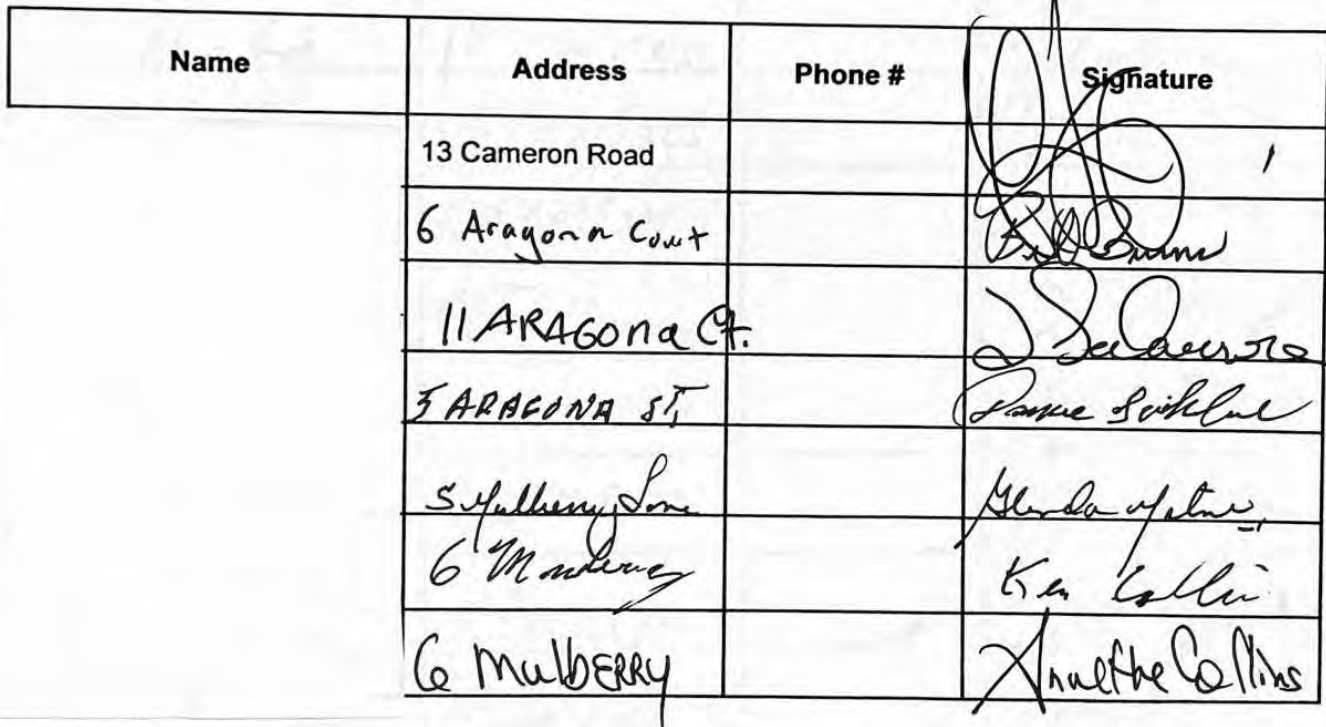 Name Address Phone # Signature
13 Cameron Road
6 Aragona Court Bill
11 ARAGONa Ct.
5 ARAGONA ST,
5 Mulberry Lane Glenda
6 Ken Collin
6 MulbERRY Annethe Collins